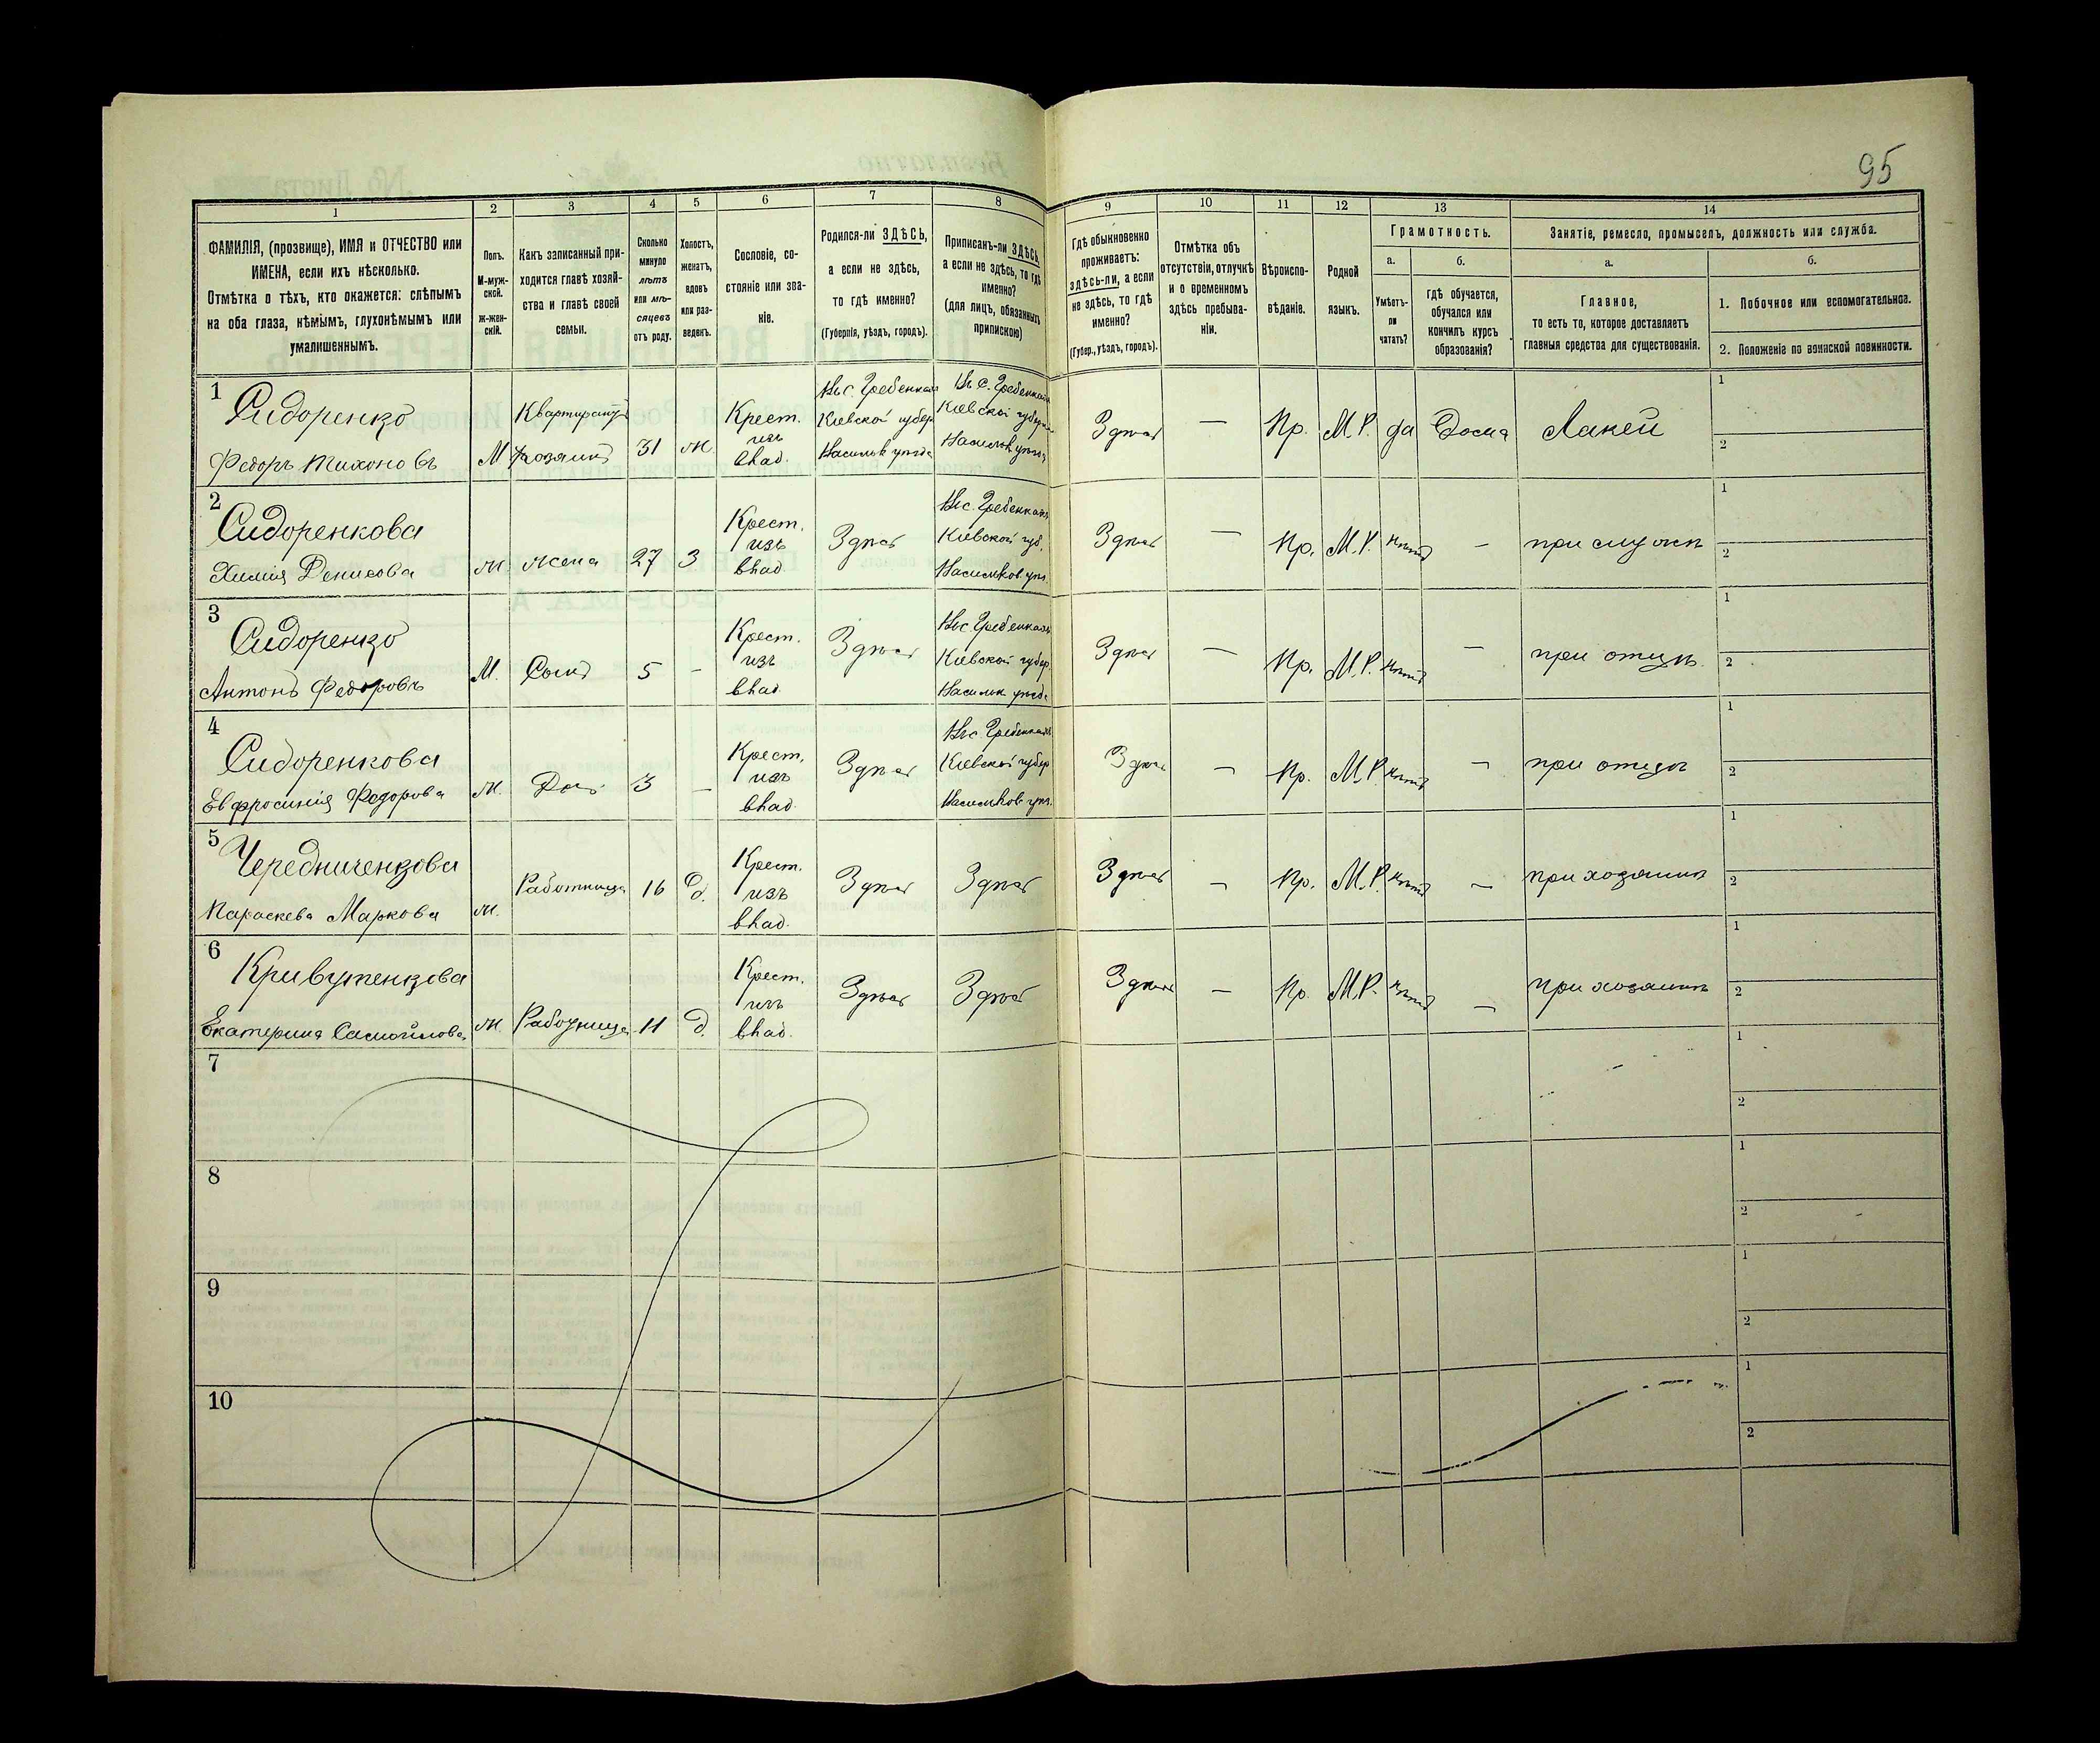 95
1 2 3 4 5 6 7 8 9 10 11 12 13 14
ФАМИЛІЯ, (прозвище), ИМЯ и ОТЧЕСТВО или
ИМЕНА, если ихъ нѣсколько.
Отмѣтка о тѣхъ, кто окажется: слѣпымъ
на оба глаза, нѣмымъ, глухонѣмымъ или
умалишеннымъ.
Полъ.
М-муж-
ской.
ж-жен-
скій.
Какъ записанный при-
ходится главѣ хозяй-
ства и главѣ своей
семьи.
Сколько
минуло
лѣтъ
или мѣ-
сяцевъ
отъ роду.
Холостъ,
женатъ,
вдовъ
или раз-
веденъ.
Сословіе, со-
стояніе или зва-
ніе.
Родился-ли ЗДѢСЬ,
а если не здѣсь,
то гдѣ именно?
(Губернія, уѣздъ, городъ).
Приписанъ-ли ЗДѢСЬ,
а если не здѣсь, то гдѣ
именно?
(для лицъ, обязанныхъ
припискою)
Гдѣ обыкновенно
проживаетъ:
здѣсь-ли, а если
не здѣсь, то гдѣ
именно?
(Губер., уѣздъ, городъ).
Отмѣтка объ
отсутствіи, отлучкѣ
и о временномъ
здѣсь пребыва-
ніи.
Вѣроиспо-
вѣданіе.
Родной
языкъ.
Грамотность.
а.
Умѣетъ-
ли
читать?
б.
Гдѣ обучается,
обучался или
кончилъ курсъ
образованія?
Занятіе, ремесло, промыселъ, должность или служба.
а.
Главное,
то есть то, которое доставляетъ
главныя средства для существованія.
б.
1. Побочное или вспомогательное.
2. Положеніе по воинской повинности.
1
Сидоренко
Федоръ Тихоновъ
М
Квартирантъ
Хозяинъ
31
ж.
Крест.
изъ
влад.
Въ с. Гребенкахъ
Кіевской губер.
Васильк уѣзда
Въ с. Гребенкахъ
Кіевской губерн
Васильк уѣзда
Здѣсь
—
Пр.
М. Р.
да
Дома
Лакей
1
2
2
Сидоренкова
Денисова
ж
жена
27
З
Крест.
изъ
влад
Здѣсь
Въ с. Гребенкахъ
Кіевской губ.
Васильков уѣз.
Здѣсь
—
Пр.
М. Р.
нѣтъ
—
при мужѣ
1
2
3
Сидоренко
Антонъ Федоровъ
М.
Сынъ
5
-
Крест.
изъ
влад.
Здѣсь
Въ с Гребенкахъ
Кіевской губер.
Васильк уѣзда
Здѣсь
—
Пр.
М. Р.
нѣтъ
—
при отцѣ.
1
2
4
Сидоренкова
Евфросинія Федорова
ж.
Дочь
3
—
Крест.
изъ
влад.
Здѣсь
Въ с. Гребенкахъ
Кіевской губер
Васильков уѣз.
Здѣсь
—
Пр.
М. Р.
нѣтъ
—
при отцѣ
1
2
5
Чередниченкова
Параскева Маркова
ж.
Работница
16
д.
Крест.
изъ
влад.
Здѣсь
Здѣсь
Здѣсь
—
Пр.
М. Р.
нѣтъ
—
при хозяинѣ
1
2
6
Екатерина Самойлова
ж.
Работница
11
д.
Крест.
изъ
влад.
Здѣсь
Здѣсь
Здѣсь
—
Пр.
М. Р.
нѣтъ
—
при хозяинѣ
1
2
7
1
2
8
1
2
9
1
2
10
1
2